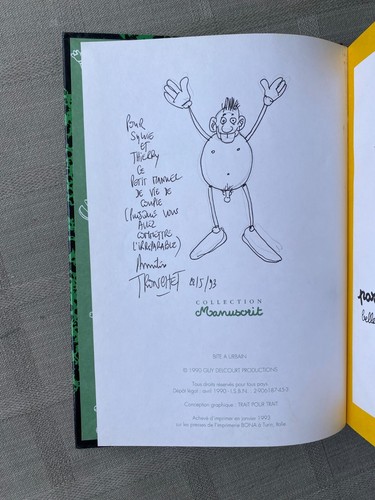 POUR
SYLVIE
ET
THIERRY
CE
PETIT MANUEL
DE VIE DE
COUPLE
(PUISQUE VOUS
ALLEZ
COMMETTRE
L'IRRÉPARABLE)
Amitiés
TRONCHET
COLLECTION
Manuscrit
BITE A URBAIN
© 1990 GUY DELCOURT PRODUCTIONS
Tous droits réservés pour tous pays
Dépôt légal : avril 1990 - I.S.B.N. : 2-906187-63-5
Conception graphique : TRAIT POUR TRAIT
Achevé d'imprimer en janvier 1993
sur les presses de l'imprimerie BONA à Turin, Italie
belle